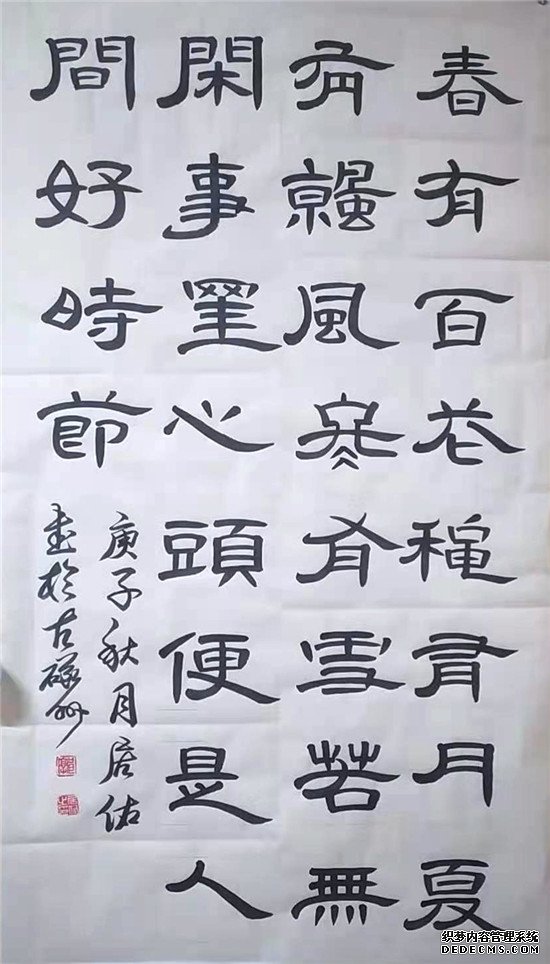 春有百花穐有月夏
有風冬有雪若無
閑事罣心頭便是人
間好時節
庚子秋月
書於古州
织梦内容管理系统
DEDECMS.COM